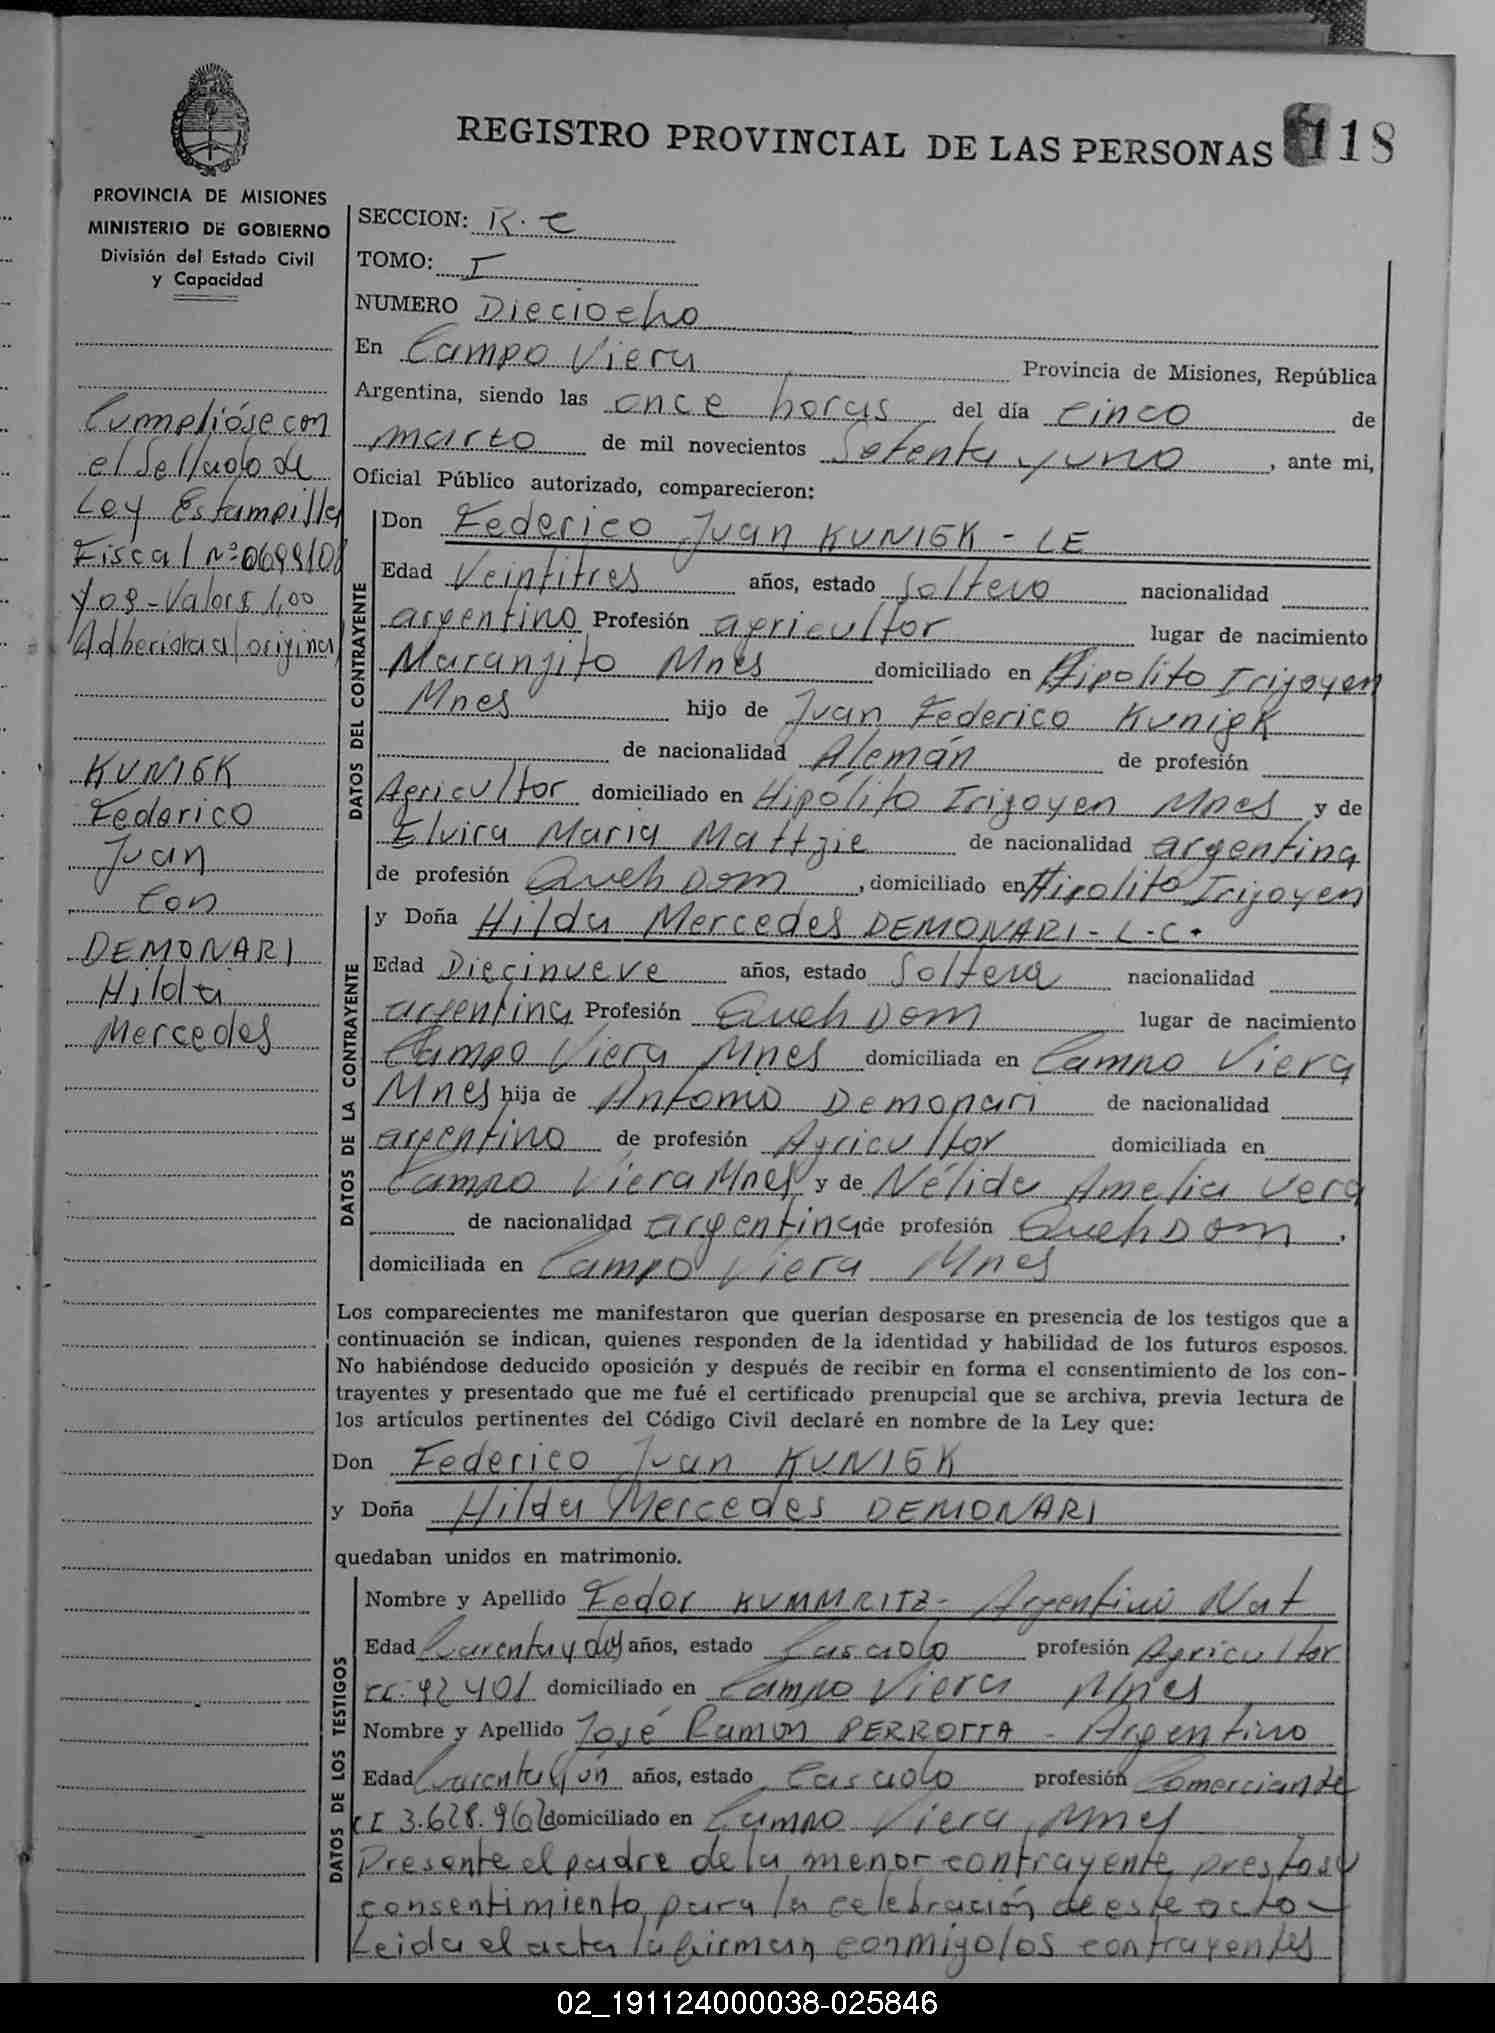 REGISTRO PROVINCIAL DE LAS PERSONAS 118
PROVINCIA DE MISIONES
MINISTERIO DE GOBIERNO
División del Estado Civil
y Capacidad
SECCION: R. C
TOMO: I
NUMERO Dieciocho
En Campo Viera Provincia de Misiones, República
Argentina, siendo las once horas del día cinco de
marzo de mil novecientos Setenta y uno, ante mi,
Oficial Público autorizado, comparecieron:
Cumplióse con
el Sellado de
Ley Estampilla
Fiscal Nº
y 09 - Valor $ 1,00
Adherida al original
KUNIGK
Federico
Juan
Con
DEMONARI
Hilda
Mercedes
DATOS DEL CONTRAYENTE
Don Federico Juan KUNIGK - LE
Edad Veintitres años, estado Soltero nacionalidad
argentino Profesión agricultor lugar de nacimiento
Maranjito Mnes domiciliado en Hipolito Irigoyen
Mnes hijo de Juan Federico Kunigk
de nacionalidad Alemán de profesión
Agricultor domiciliado en Hipólito Irigoyen Mnes y de
Elvira Maria Mattzie de nacionalidad argentina
de profesión Queh Dom, domiciliado en Hipolito Irigoyen
DATOS DE LA CONTRAYENTE
y Doña Hilda Mercedes DEMONARI - L.C.
Edad Diecinueve años, estado Soltera nacionalidad
argentina Profesión Queh Dom lugar de nacimiento
Campo Viera Mnes domiciliada en Campo Viera
Mnes hija de Antonio Demonari de nacionalidad
argentino de profesión Agricultor domiciliada en
Campo Viera Mnes y de Nélida Amelia Vera
de nacionalidad argentina de profesión Queh Dom.
domiciliada en Campo Viera Mnes
Los comparecientes me manifestaron que querían desposarse en presencia de los testigos que a
continuación se indican, quienes responden de la identidad y habilidad de los futuros esposos.
No habiéndose deducido oposición y después de recibir en forma el consentimiento de los con-
trayentes y presentado que me fué el certificado prenupcial que se archiva, previa lectura de
los artículos pertinentes del Código Civil declaré en nombre de la Ley que:
Don Federico Juan KUNIGK
y Doña Hilda Mercedes DEMONARI
quedaban unidos en matrimonio.
DATOS DE LOS TESTIGOS
Nombre y Apellido Fedor KUMMRITZ - Argentino Nat
Edad Cuarenta y dos años, estado Casado profesión Agricultor
42401 domiciliado en Campo Viera Mnes
Nombre y Apellido José Ramón PERROTTA - Argentino
Edad Cuarenta y ún años, estado Casado profesión Comerciante
CI 3.628.962 domiciliado en Campo Viera Mnes
Presente el padre de la menor contrayente, presta su
consentimiento para la celebración de este acto -
Leida el acta la firman conmigo los contrayentes
02_191124000038-025846